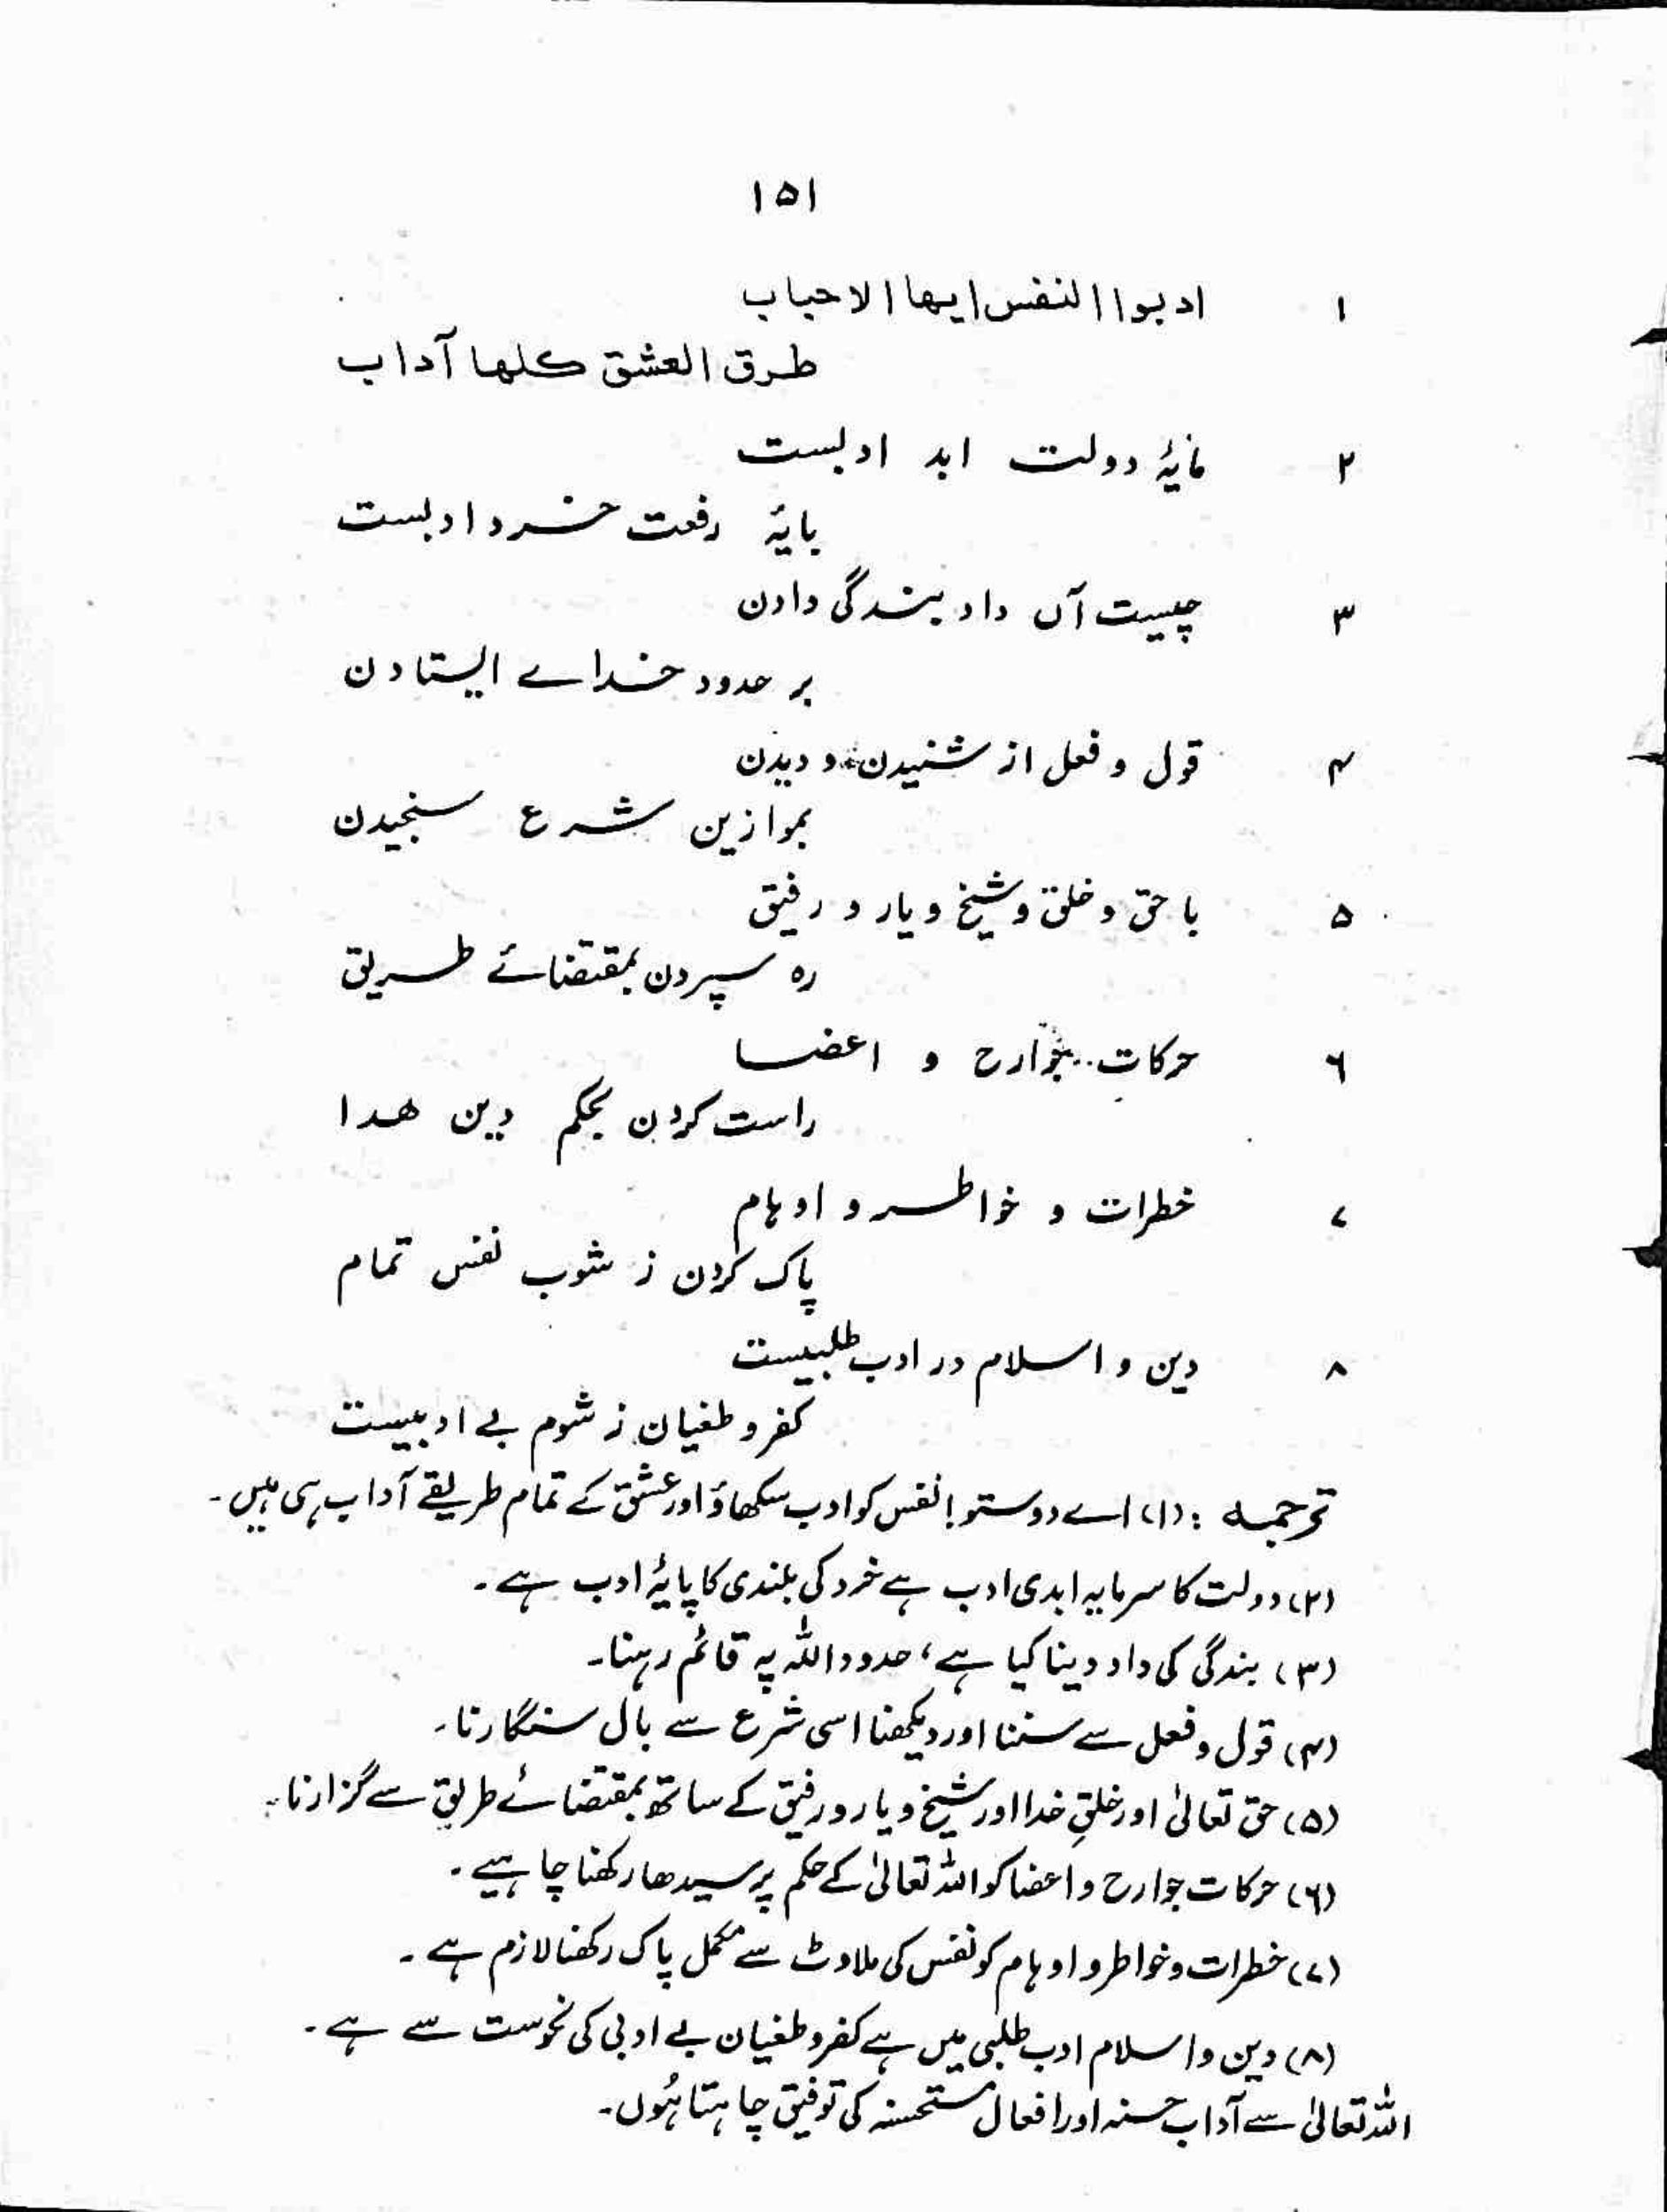 ۱۵۱
۱ ادبوا النفس ایها الاحباب
طرق العشق کلها آداب
۲ مایۂ دولت ابد ادبست
پایۂ رفعت خرد ادبست
۳ چیست آں داد بندگی دادن
بر حدود خداے ایستادن
۴ قول و فعل از شنیدن و دیدن
بموازین شرع سنجیدن
۵ با حق و خلق و شیخ و یار و رفیق
ره سپردن بمقتضائے طریق
۶ حرکات جوارح و اعضا
راست کردن بحکم دین هدا
۷ خطرات و خواطر و اوہام
پاک کردن ز شوب نفس تمام
۸ دین و اسلام در ادب طلبیست
کفر و طغیان ز شوم بے ادبیست
ترجمہ : (۱) اے دوستو! نفس کو ادب سکھاؤ اور عشق کے تمام طریقے آداب ہی ہیں۔
(۲) دولت کا سرمایہ ابدی ادب ہے خرد کی بلندی کا پایۂ ادب ہے۔
(۳) بندگی کی داد دینا کیا ہے، حدود اللہ پہ قائم رہنا۔
(۴) قول و فعل سے سننا اور دیکھنا اسی شرع سے بال سنگارنا۔
(۵) حق تعالیٰ اور خلقِ خدا اور شیخ و یار و رفیق کے ساتھ بمقتضائے طریق سے گزارنا۔
(۶) حرکات جوارح و اعضا کو اللہ تعالیٰ کے حکم پر سیدھا رکھنا چاہیے۔
(۷) خطرات و خواطر و اوہام کو نفس کی ملاوٹ سے مکمل پاک رکھنا لازم ہے۔
(۸) دین و اسلام ادب طلبی میں ہے کفر و طغیان بے ادبی کی نحوست سے ہے۔
اللہ تعالیٰ سے آداب حسنہ اور افعال مستحسنہ کی توفیق چاہتا ہُوں۔